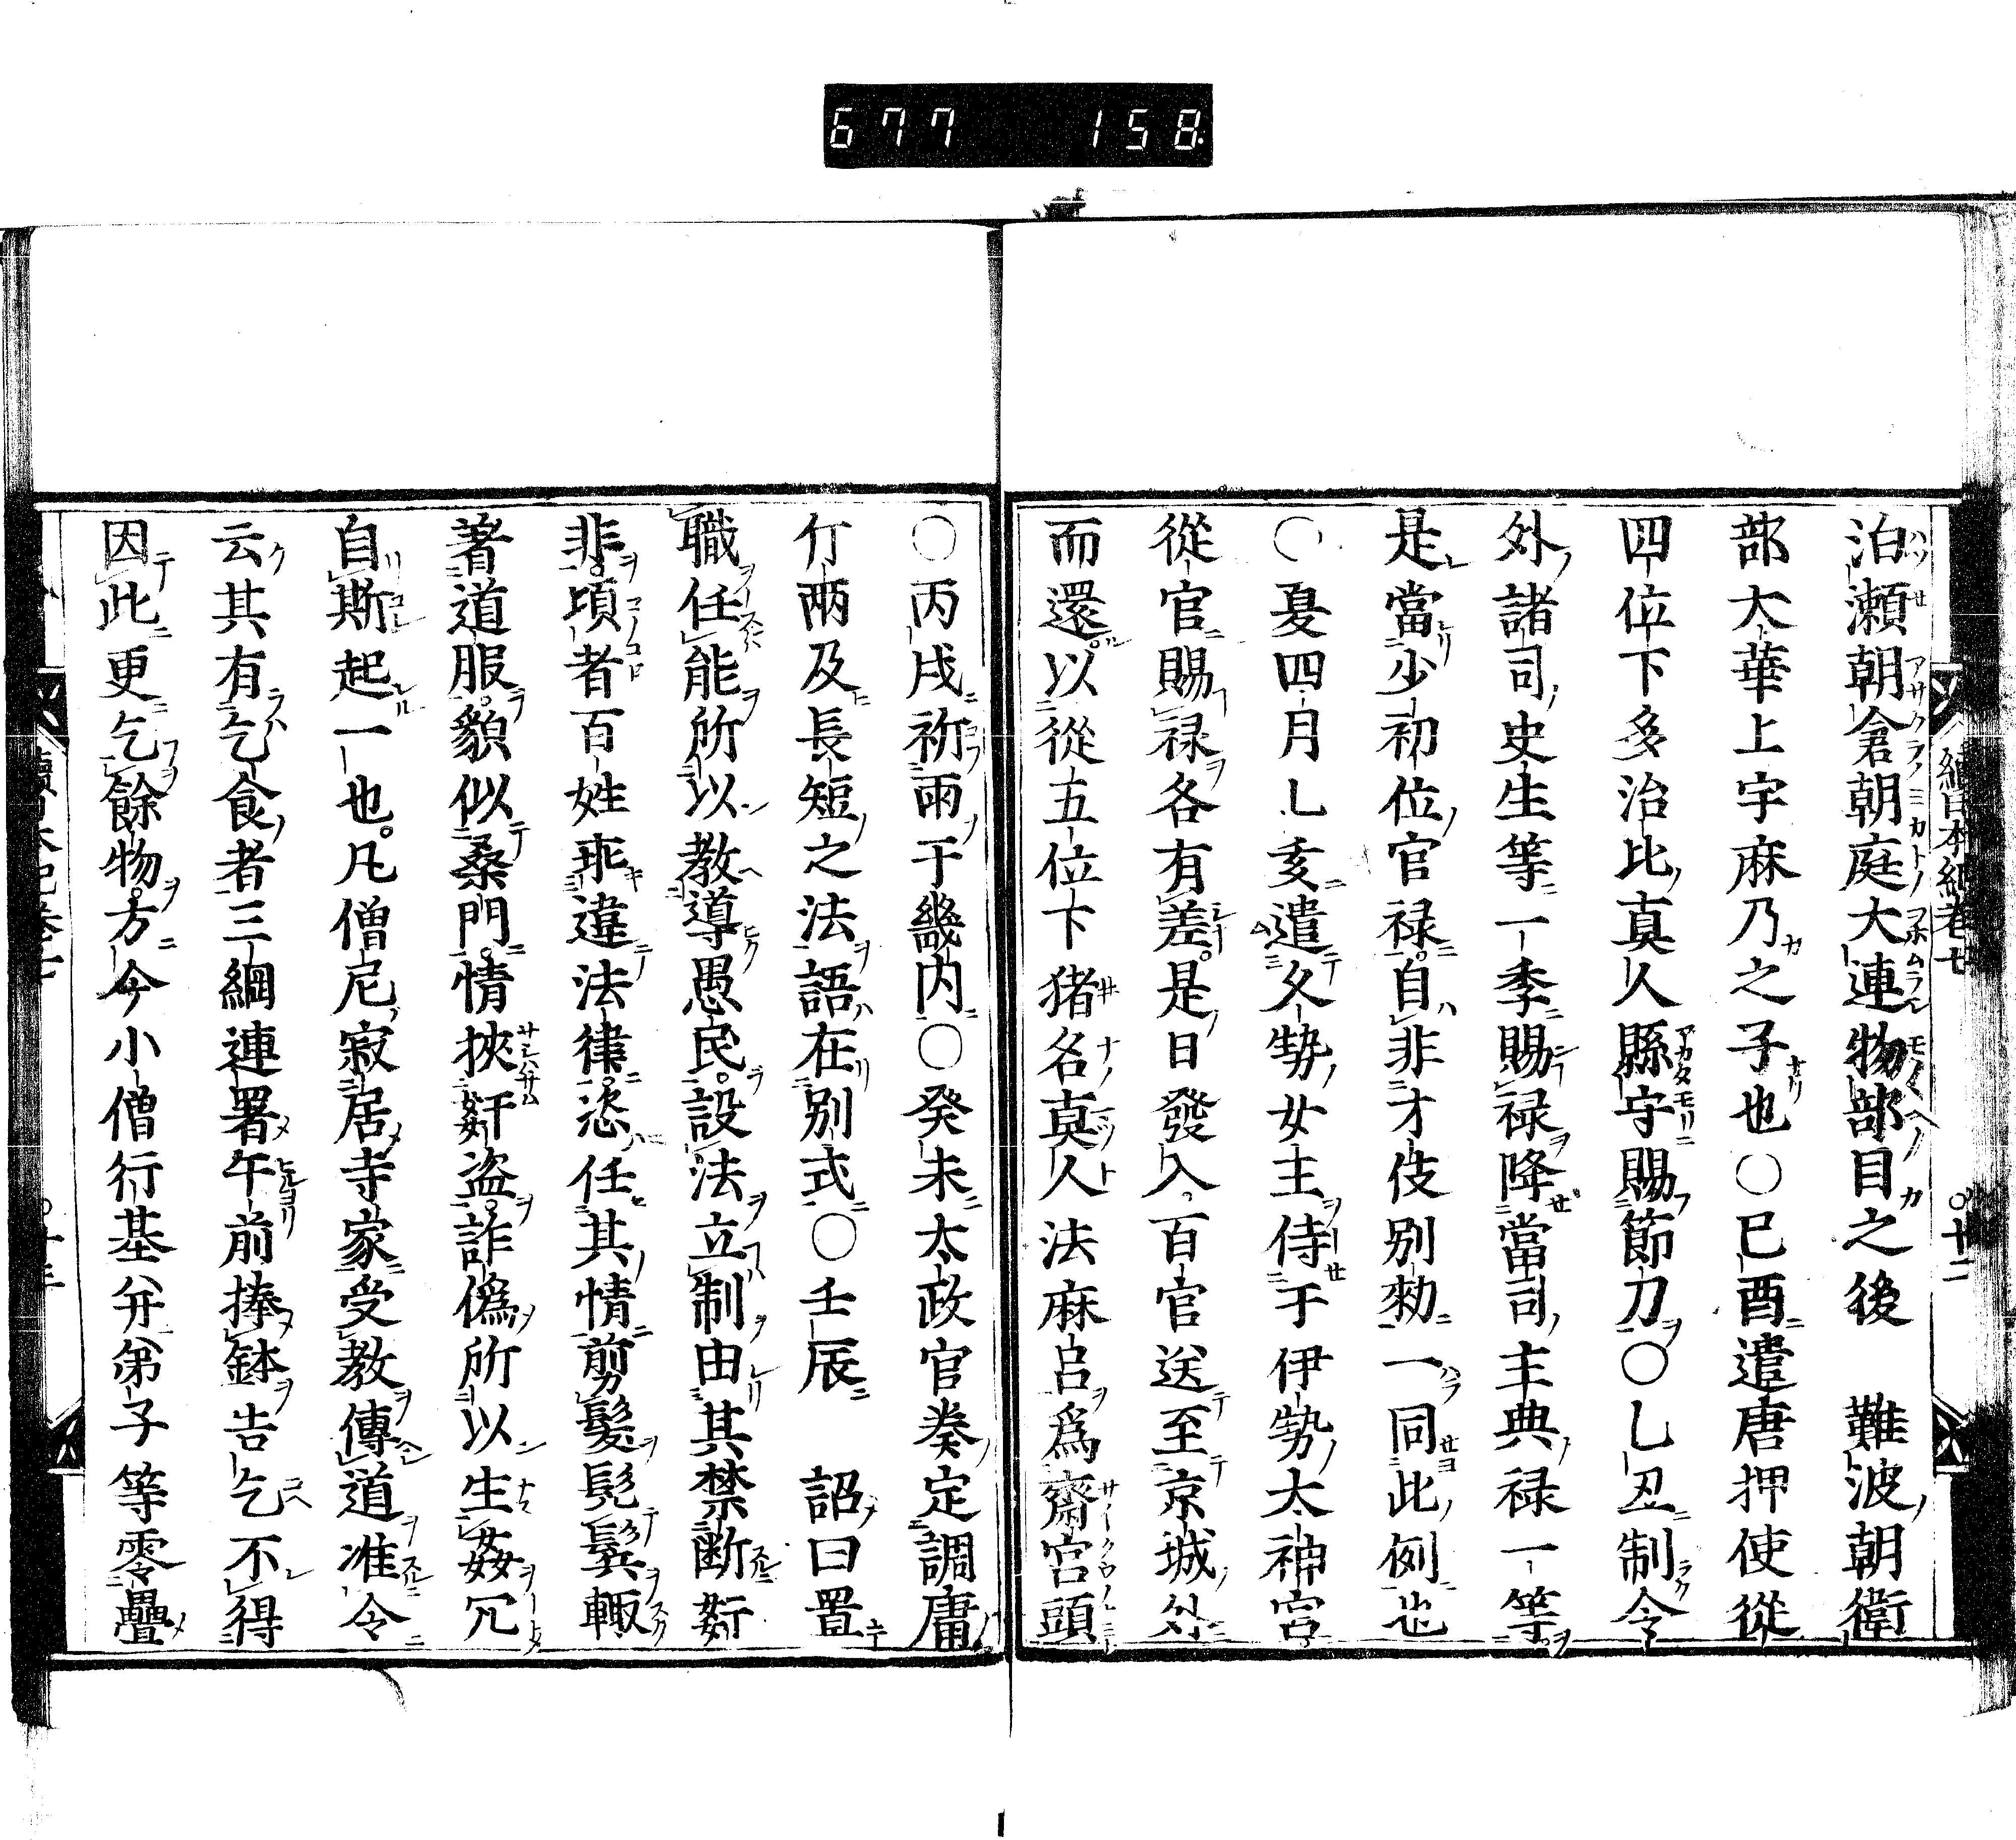 677 158
續日本紀卷七 ○十二
泊瀬朝倉朝庭大連物部目之後 難波朝衛
部大華上宇麻乃之子也○己酉遣唐押使從
四位下多治比真人縣守賜節刀○乚丑制令
外諸司史生等一季賜禄降當司主典禄一等
是當少初位官禄自非才伎別勅一同此例也
○夏四月乚亥遣久勢女主侍于伊勢太神宮
從官賜禄各有差是日發入百官送至京城外
而還以從五位下猪名真人法麻呂爲齋宮頭
○丙戌祈雨于畿内○癸未太政官奏定調庸
斤兩及長短之法語在別式○壬辰 詔曰置
職任能所以教導愚民設法立制由其禁断姧
非頃者百姓乖違法律恣任其情剪髮髠鬢輙
著道服貌似桑門情挾姧盗詐偽所以生姦宄
自斯起一也凡僧尼寂居寺家受教傳道准令
云其有乞食者三綱連署午前捧鉢告乞不得
因此更乞餘物方今小僧行基并弟子等零疊